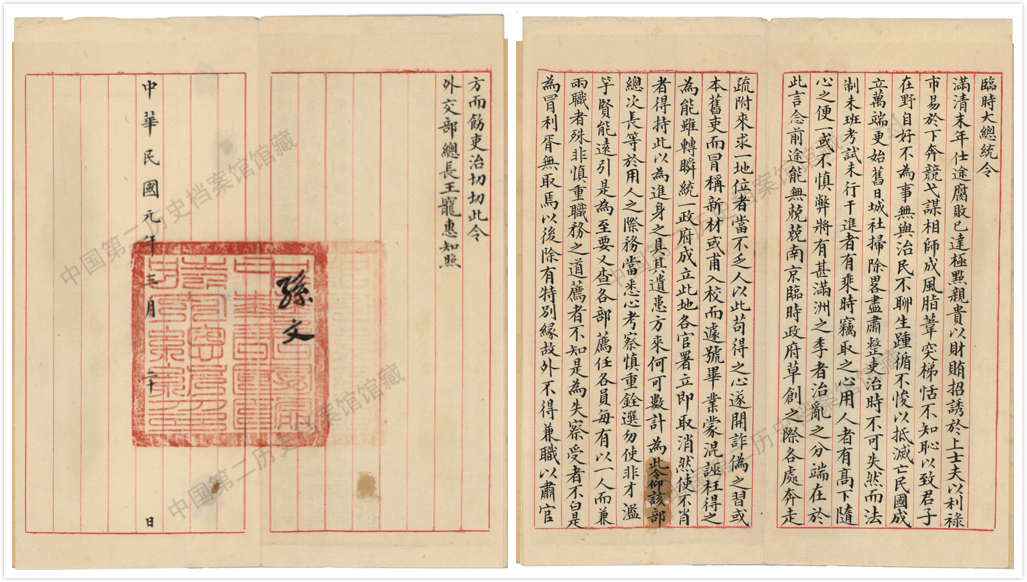 臨時大總統令
滿清末年仕途腐敗已達極點親貴以財賄招誘於上士夫以利祿
市易於下奔競弋謀相師成風脂葦突梯恬不知恥以致君子
在野自好不為事無與治民不聊生踵循不悛以抵滅亡民國成
立萬端更始舊日城社掃除畧盡肅整吏治時不可失然而法
制未班考試未行干進者有乘時竊取之心用人者有高下隨
心之便一或不慎弊將有甚滿洲之季者治亂之分端在於
此言念前途能無兢兢南京臨時政府草創之際各處奔走
疏附來求一地位者當不乏人以此苟得之心遂開詐偽之習或
本舊吏而冒稱新材或甫入校而遽號畢業蒙混誣枉得之
為能雖轉瞬統一政府成立此地各官署立即取消然使不肖
者得持此以為進身之具其遺患方來何可數計為此令仰該部
總次長等於用人之際務當悉心考察慎重銓選勿使非才濫
竽賢能遠引是為至要又查各部薦任各員每有以一人而兼
兩職者殊非慎重職務之道薦者不知是為失察受者不白是
為冒利胥無取焉以後除有特別緣故外不得兼職以肅官
方而飭吏治切切此令
外交部總長王寵惠知照
孫文
中華民國元年三月二十日
中国第二历史档案馆馆藏
中国第二历史档案馆馆藏